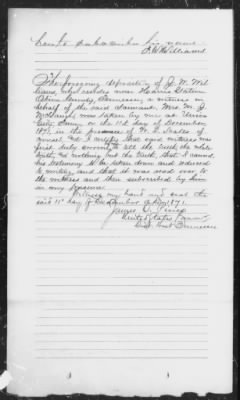 J. W. Williams
The foregoing deposition of J. W. Wil
liams, who resides near Harris Station
Obion County, Tennessee, a witness in
behalf of the said claimant, Mrs. M. J.
was taken by me at Union
City, Tenn. on the 11th day of December
1871, in the presence of W. S.
and I certify that said witness was
first duly sworn to tell the truth, the whole
truth, and nothing but the truth, that I caused
his testimony to be taken down and reduced
to writing, and that it was read over to
the witness and then subscribed by him
in my presence.
Witness my hand and seal the
said 11th day of December A.D. 1871.
James
United States Comr.
Dist. West Tennessee